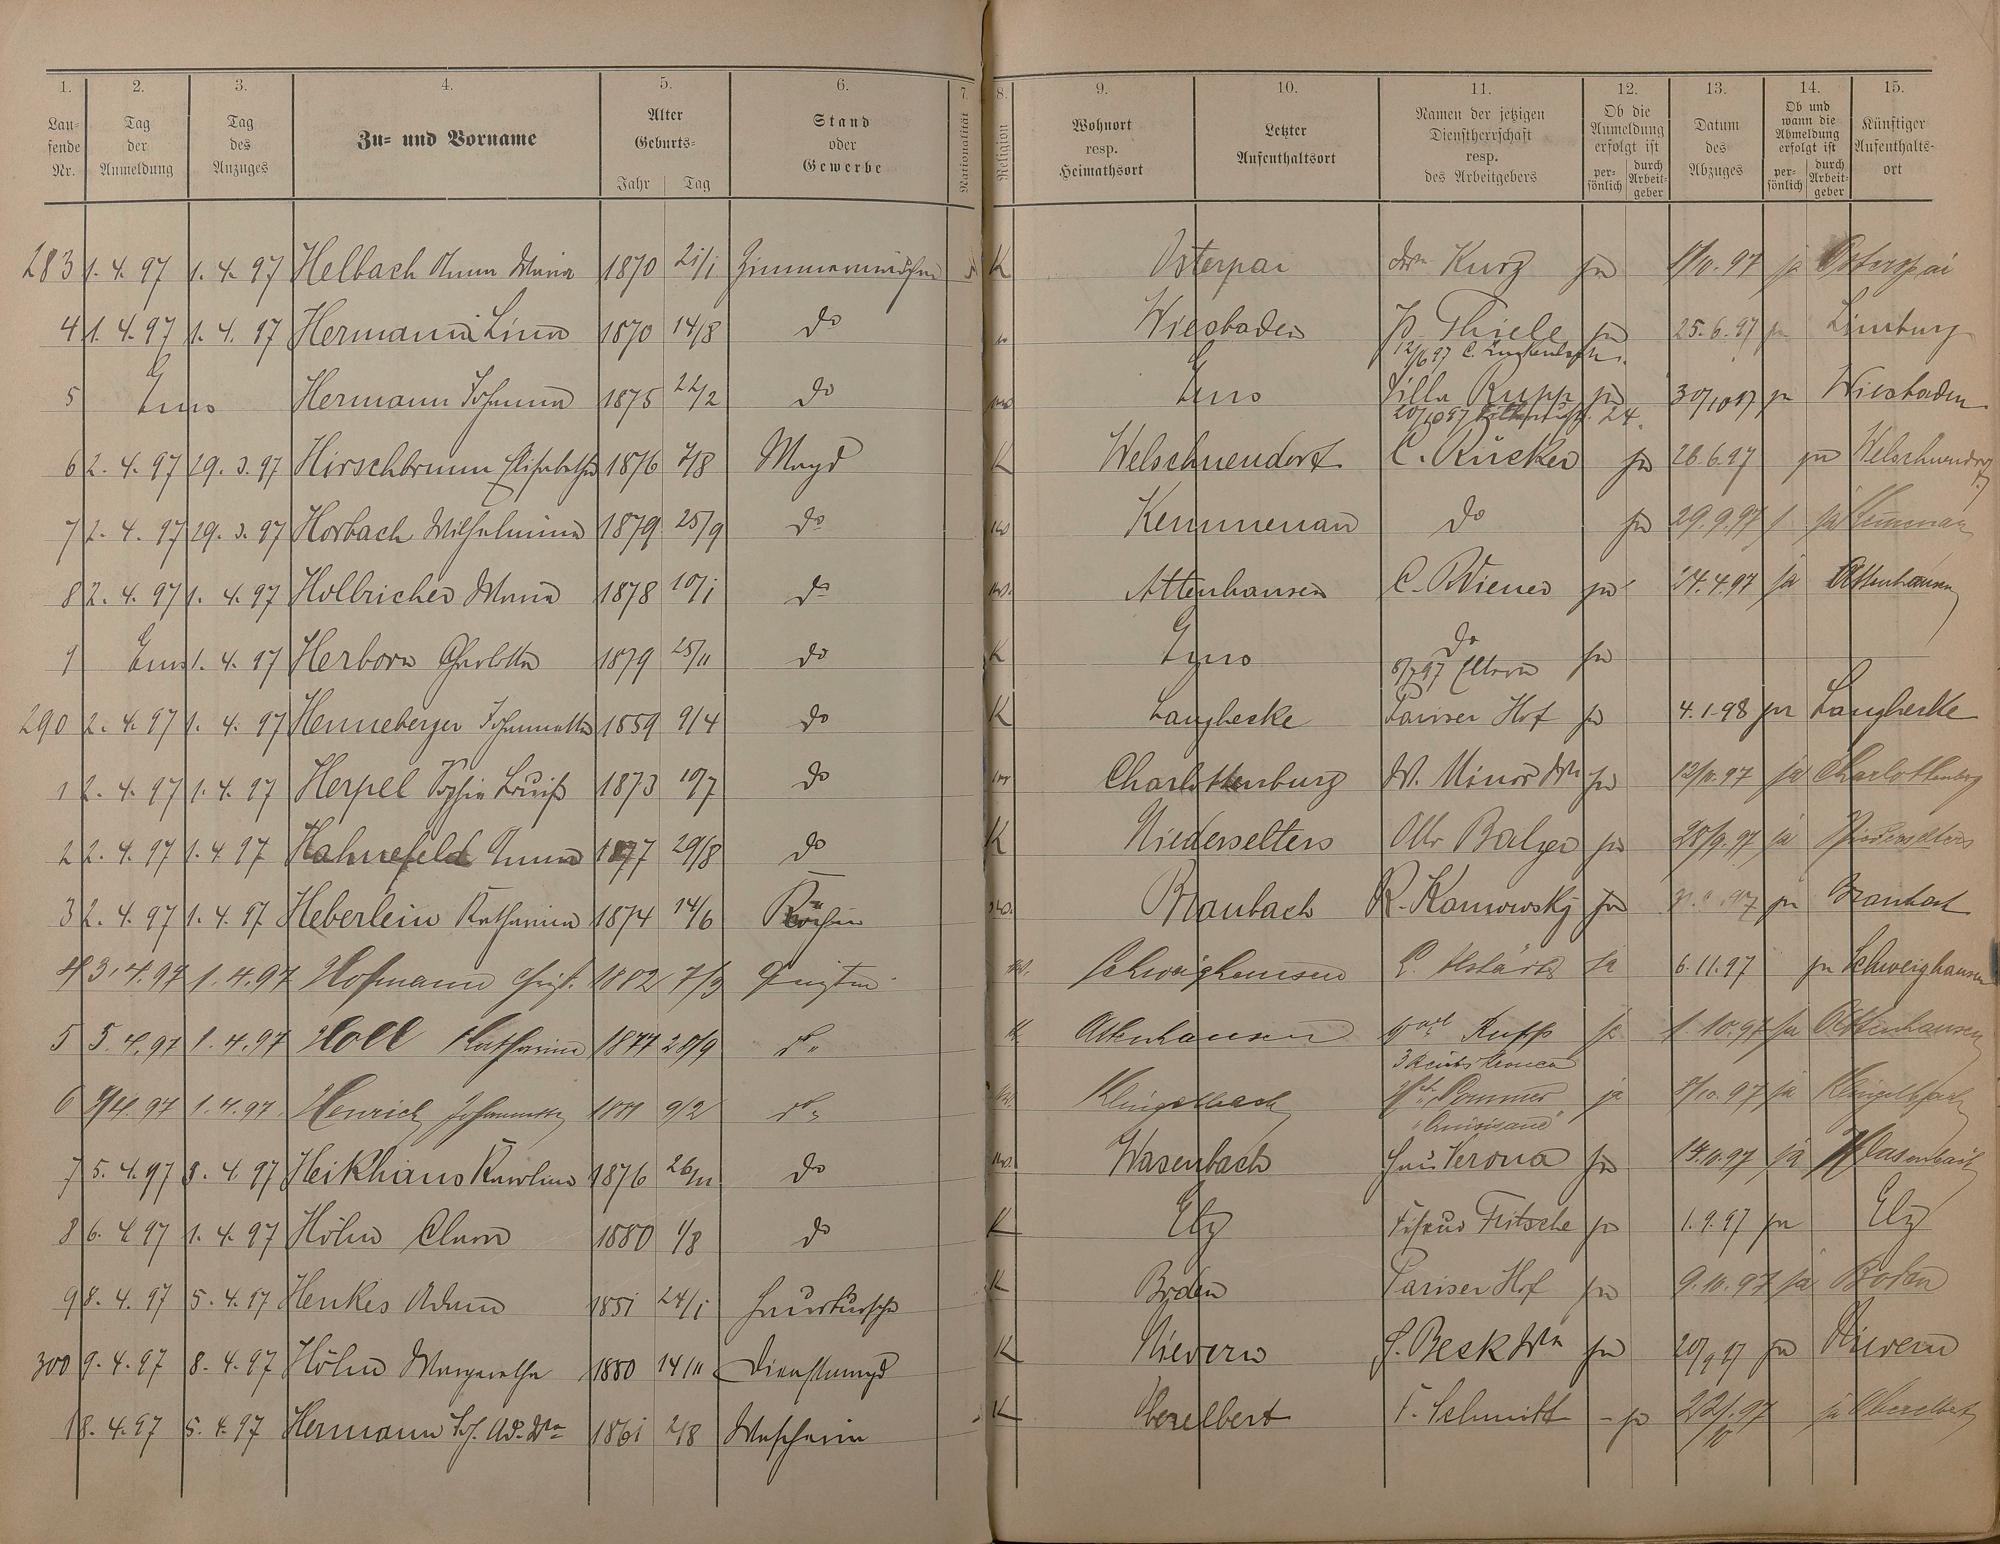 1. 2. 3. 4. 5. 6. 7. 8. 9. 10. 11. 12. 13. 14. 15.
Lau-
fende
Nr.
Tag
der
Anmeldung
Tag
des
Anzuges
Zu- und Vorname
Alter
Geburts-
Jahr Tag
Stand
oder
Gewerbe
Nationalität
Religion
Wohnort
resp.
Heimathsort
Letzter
Aufenthaltsort
Namen der jetzigen
Dienstherrschaft
resp.
des Arbeitgebers
Ob die
Anmeldung
erfolgt ist
per-
sönlich
durch
Arbeit-
geber
Datum
des
Abzuges
Ob und
wann die
Abmeldung
erfolgt ist
per-
sönlich
durch
Arbeit-
geber
Künftiger
Aufenthalts-
ort
283 1. 4. 97 1. 4. 97 Helbach Anna Maria 1870 21/1 Zimmermädchen K Osterpai Kurz ja 97 ja Osterspai
4 1. 4. 97 1. 4. 97 Hermann Lina 1870 14/8 do Wiesbaden Thiele ja 25. 6. 97 ja Limburg
12/6 97
5 Ems Hermann Johanna 1875 22/2 do Ems Villa Rupp ja 30/10 97 ja Wiesbaden
20/10 97 24.
6 2. 4. 97 29. 3. 97 Hirschbrunn Elisabetha 1876 7/8 Magd K Welschneudorf C. Rücker ja 26. 6. 97 ja Welschneudorf
7 2. 4. 97 29. 3. 97 Horbach Wilhelmina 1879 25/9 do Kemmenau do ja 29. 9. 97 ja Kemmenau
8 2. 4. 97 1. 4. 97 Holbricher Maria 1878 10/1 do Attenhausen ja 24. 4. 97 ja Attenhausen
9 Ems 1. 4. 97 Herborn Charlotta 1879 25/11 do K Ems do ja
8/7 97 Eltern
290 2. 4. 97 1. 4. 97 Henneberger Johannetta 1859 9/4 do K Langhecke Pariser Hof ja 4. 1. 98 ja Langhecke
1 2. 4. 97 1. 4. 97 Herpel Sophie Louise 1873 10/7 do Charlottenburg W. Minor Wwe ja 97 ja Charlottenberg
2 2. 4. 97 1. 4 97 Hahnefeld Anna 1877 29/8 do K Niederselters Balzer ja 28/9. 97 ja Niederselters
3 2. 4. 97 1. 4. 97 Heberlein Katharina 1874 14/6 Köchin Braubach R. Kanowsky ja 97 ja Braubach
4 3. 4. 97 1. 4. 97 Hofmann 7/3 Schweighausen ja 6. 11. 97 ja Schweighausen
5 5. 4. 97 1. 4. 97 Holl Katharina 1877 28/9 do K Attenhausen Rupp ja 1. 10. 97 ja Attenhausen
6 97 1. 4. 97 Henrich 9/2 do Klingelbach Sommer ja 97 ja Klingelbach
7 5. 4. 97 97 Heikhaus Karolina 1876 26/11 do Wasenbach Haus Verona ja 97 ja Wasenbach
8 6. 4 97 1. 4. 97 Höhn Clara 1880 1/8 do K Elz Fritsche ja 1. 9. 97 ja Elz
9 8. 4. 97 5. 4. 97 Henkes Adam 1851 24/1 Hausbursche K Boden Pariser Hof ja 9. 10. 97 ja Boden
300 9. 4. 97 8. 4. 97 Höhn Margaretha 1880 14/11 Dienstmagd K Nievern Beck Wwe ja 20/9 97 ja Nievern
1 8. 4. 97 5. 4. 97 Hermann Jos. Ad. Wwe 1861 2/8 Wascherin K Oberelbert F. Schmitt - ja 22/10 97 ja Oberelbert